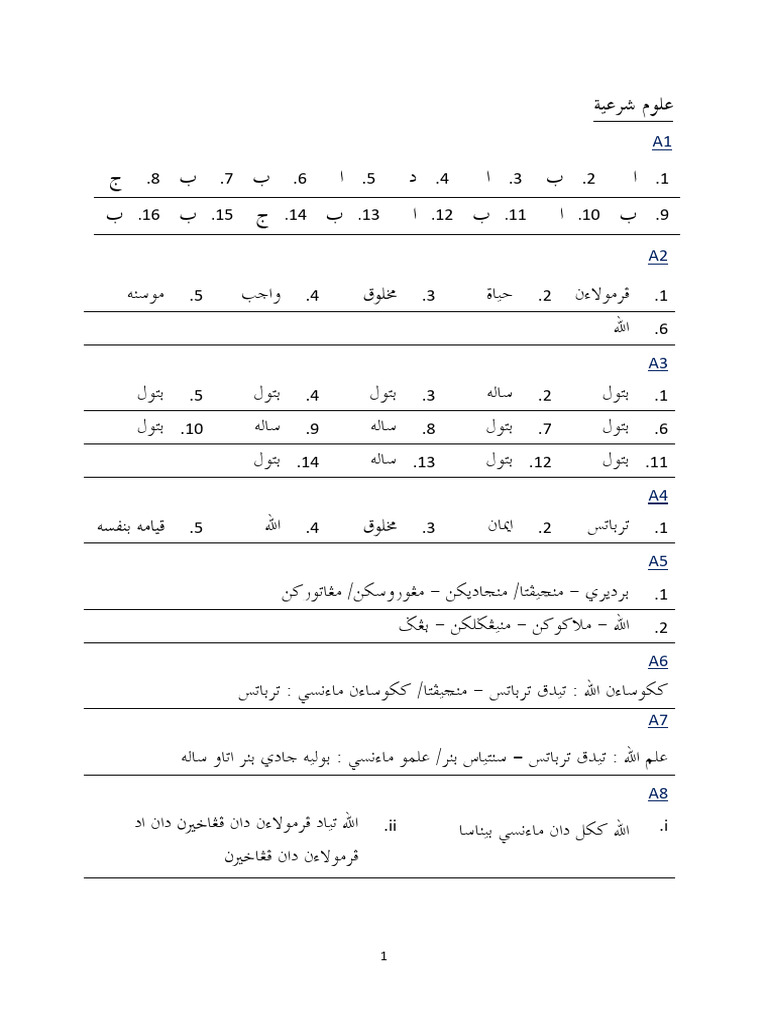 علوم شرعية
A1
1. ا 2. ب 3. ا 4. د 5. ا 6. ب 7. ب 8. ج
9. ب 10. ا 11. ب 12. ا 13. ب 14. ج 15. ب 16. ب
A2
1. ڤرمولاءن 2. حياة 3. مخلوق 4. واجب 5. موسنه
6. الله
A3
1. بتول 2. ساله 3. بتول 4. بتول 5. بتول
6. بتول 7. بتول 8. ساله 9. ساله 10. بتول
11. بتول 12. بتول 13. ساله 14. بتول
A4
1. ترباتس 2. ايمان 3. مخلوق 4. الله 5. قيامه بنفسه
A5
1. برديري – منچيڤتا/ منجاديكن – مڠوروسكن/ مڠاتوركن
2. الله – ملاكوكن – منيڠݢلكن –
A6
ككوساءن الله : تيدق ترباتس – منچيڤتا/ ككوساءن ماءنسي : ترباتس
A7
علم الله : تيدق ترباتس – سنتياس بنر/ علمو ماءنسي : بوليه جادي بنر اتاو ساله
A8
i. الله ككل دان ماءنسي بيناسا ii. الله تياد ڤرمولاءن دان ڤڠاخيرن دان اد
ڤرمولاءن دان ڤڠاخيرن
1